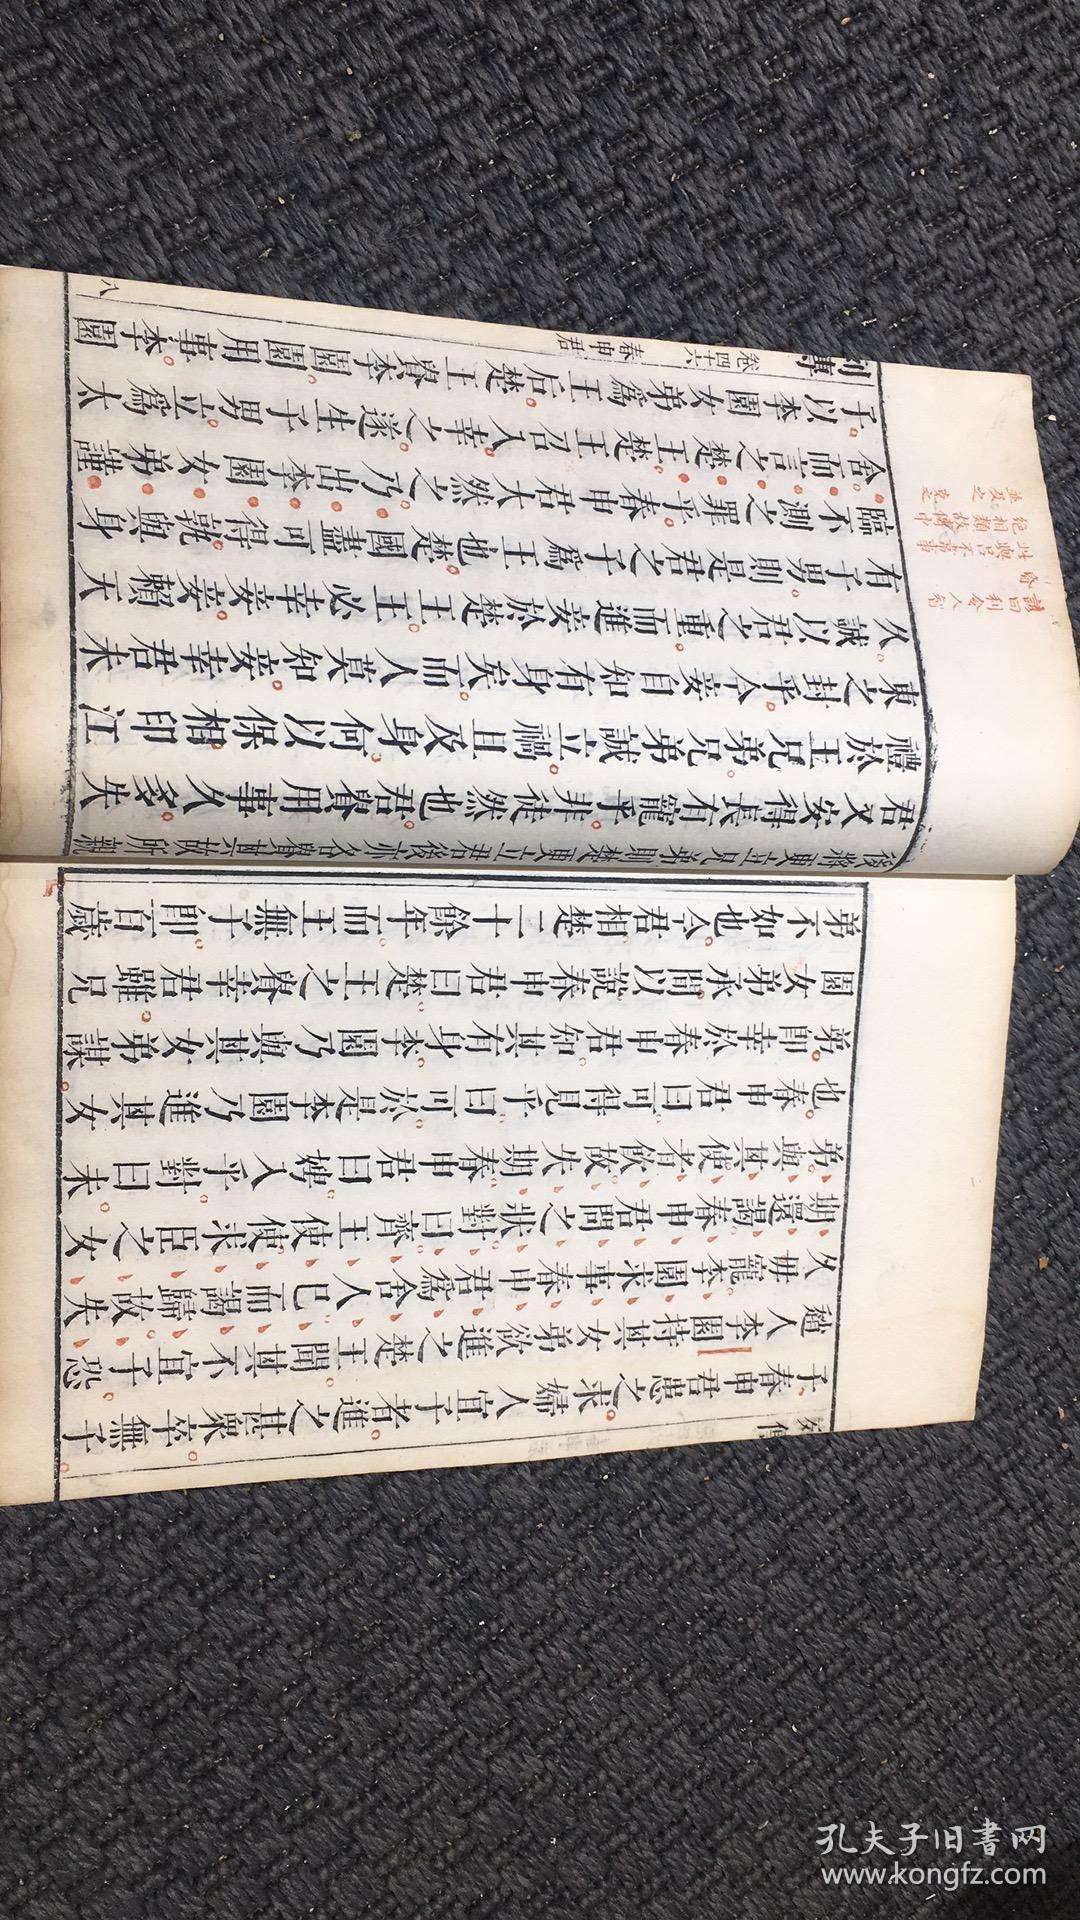 子春申君患之求婦人宜子者進之甚眾卒無子
趙人李園持其女弟欲進之楚王聞其不宜子恐
久毋寵李園求事春申君爲舍人已而謁歸故失
期還謁春申君問之狀對曰齊王使使求臣之女
弟與其使者飲故失期春申君曰娉入乎對曰未
也春申君曰可得見乎曰可於是李園乃進其女
弟即幸於春申君知其有身李園乃與其女弟謀
園女弟承間以說春申君曰楚王之貴幸君雖兄
弟不如也今君相楚二十餘年而王無子即百歲
後將更立兄弟則楚更立君後亦各貴其故所親
君又安得長有寵乎非徒然也君貴用事久多失
禮於王兄弟兄弟誠立禍且及身何以保相印江
東之封乎今妾自知有身矣而人莫知妾幸君未
久誠以君之重而進妾於楚王王必幸妾妾賴天
有子男則是君之子爲王也楚國盡可得孰與身
臨不測之罪乎春申君大然之乃出李園女弟謹
舍而言之楚王楚王召入幸之遂生子男立爲太
子以李園女弟爲王后楚王貴李園園用事李園
列傳 卷四十六 春申君 八
此與呂不韋事
絕相類故傳中
孔夫子旧書网
www.kongfz.com